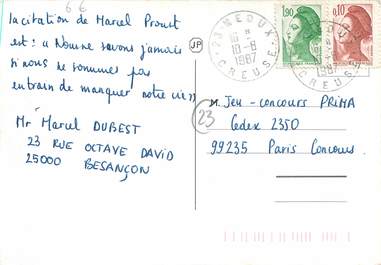 66
la citation de Marcel Proust
est : « Nous ne savons jamais
si nous ne sommes pas
en train de manquer notre vie »
Mr Marcel DUBEST
23 RUE OCTAVE DAVID
25000 BESANÇON
JP
23
1,90
0,10
10-8
1987
CREUSE
1987
CREUSE
Jeu - concours PRIMA
Cedex 2350
99235 Paris Concours